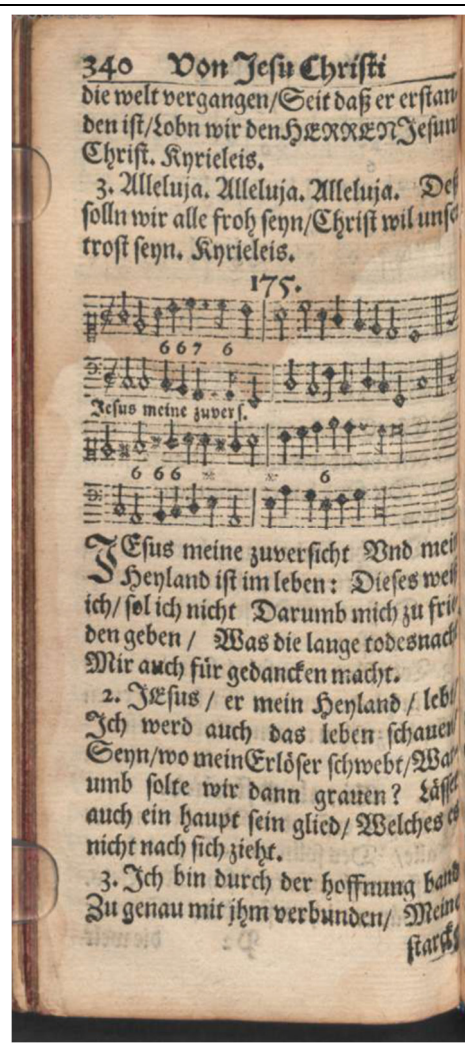 340 Von Jesu Christi
die welt vergangen/Seit daß er erstan-
den ist/Lobn wir den HERREN Jesum
Christ. Kyrieleis.
3. Alleluja. Alleluja. Alleluja. Deß
solln wir alle froh seyn/Christ wil unser
trost seyn. Kyrieleis.
175.
6 6 7 6
Jesus meine zuvers.
6 6 6 6
JEsus meine zuversicht Vnd mein
Heyland ist im leben: Dieses weiß
ich/sol ich nicht Darumb mich zu frie-
den geben / Was die lange todesnacht
Mir auch für gedancken macht.
2. JEsus / er mein Heyland / lebt/
Ich werd auch das leben schauen/
Seyn/wo mein Erlöser schwebt/War-
umb solte wir dann grauen? Lässet
auch ein haupt sein glied/ Welches es
nicht nach sich zieht.
3. Ich bin durch der hoffnung band
Zu genau mit jhm verbunden/ Meine
starcke